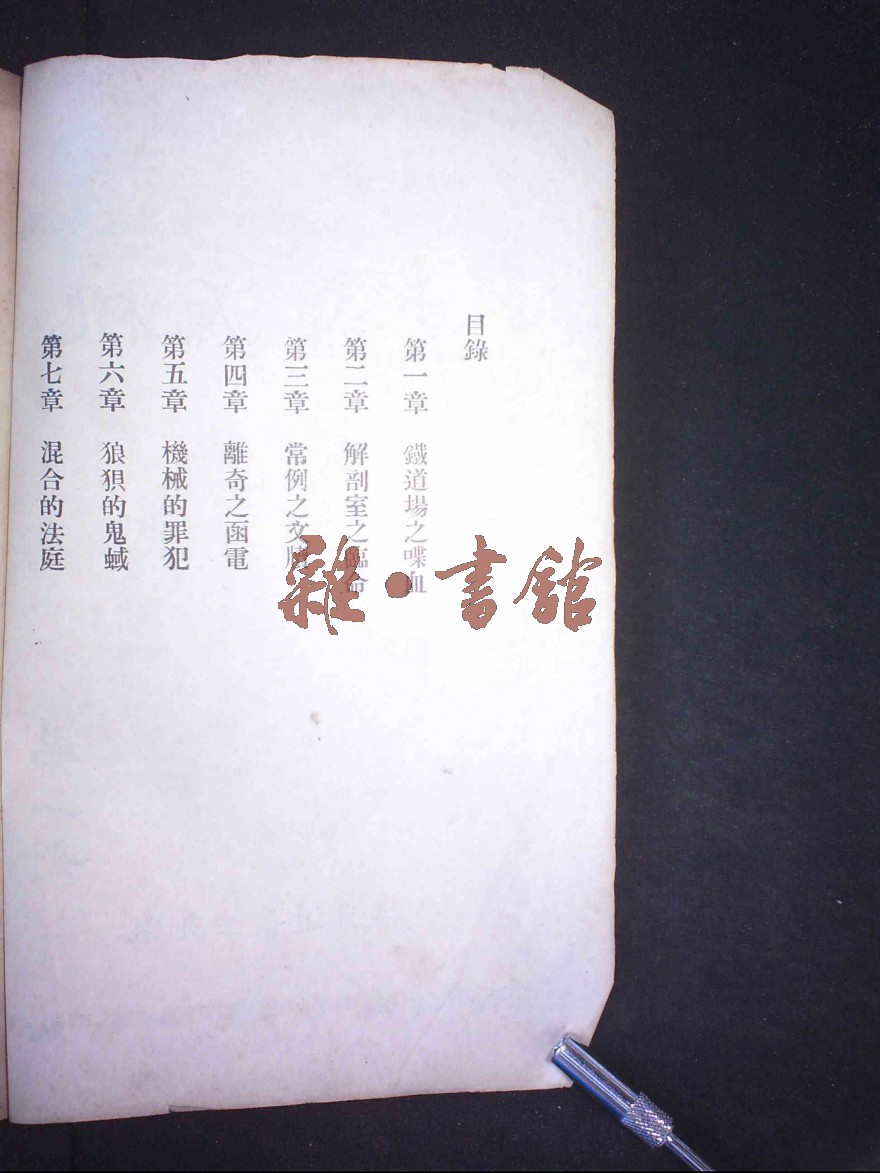 目錄
第一章 鐵道場之喋血
第二章 解剖室之臨命
第三章 常例之文牘
第四章 離奇之函電
第五章 機械的罪犯
第六章 狼狽的鬼蜮
第七章 混合的法庭
雜·書館